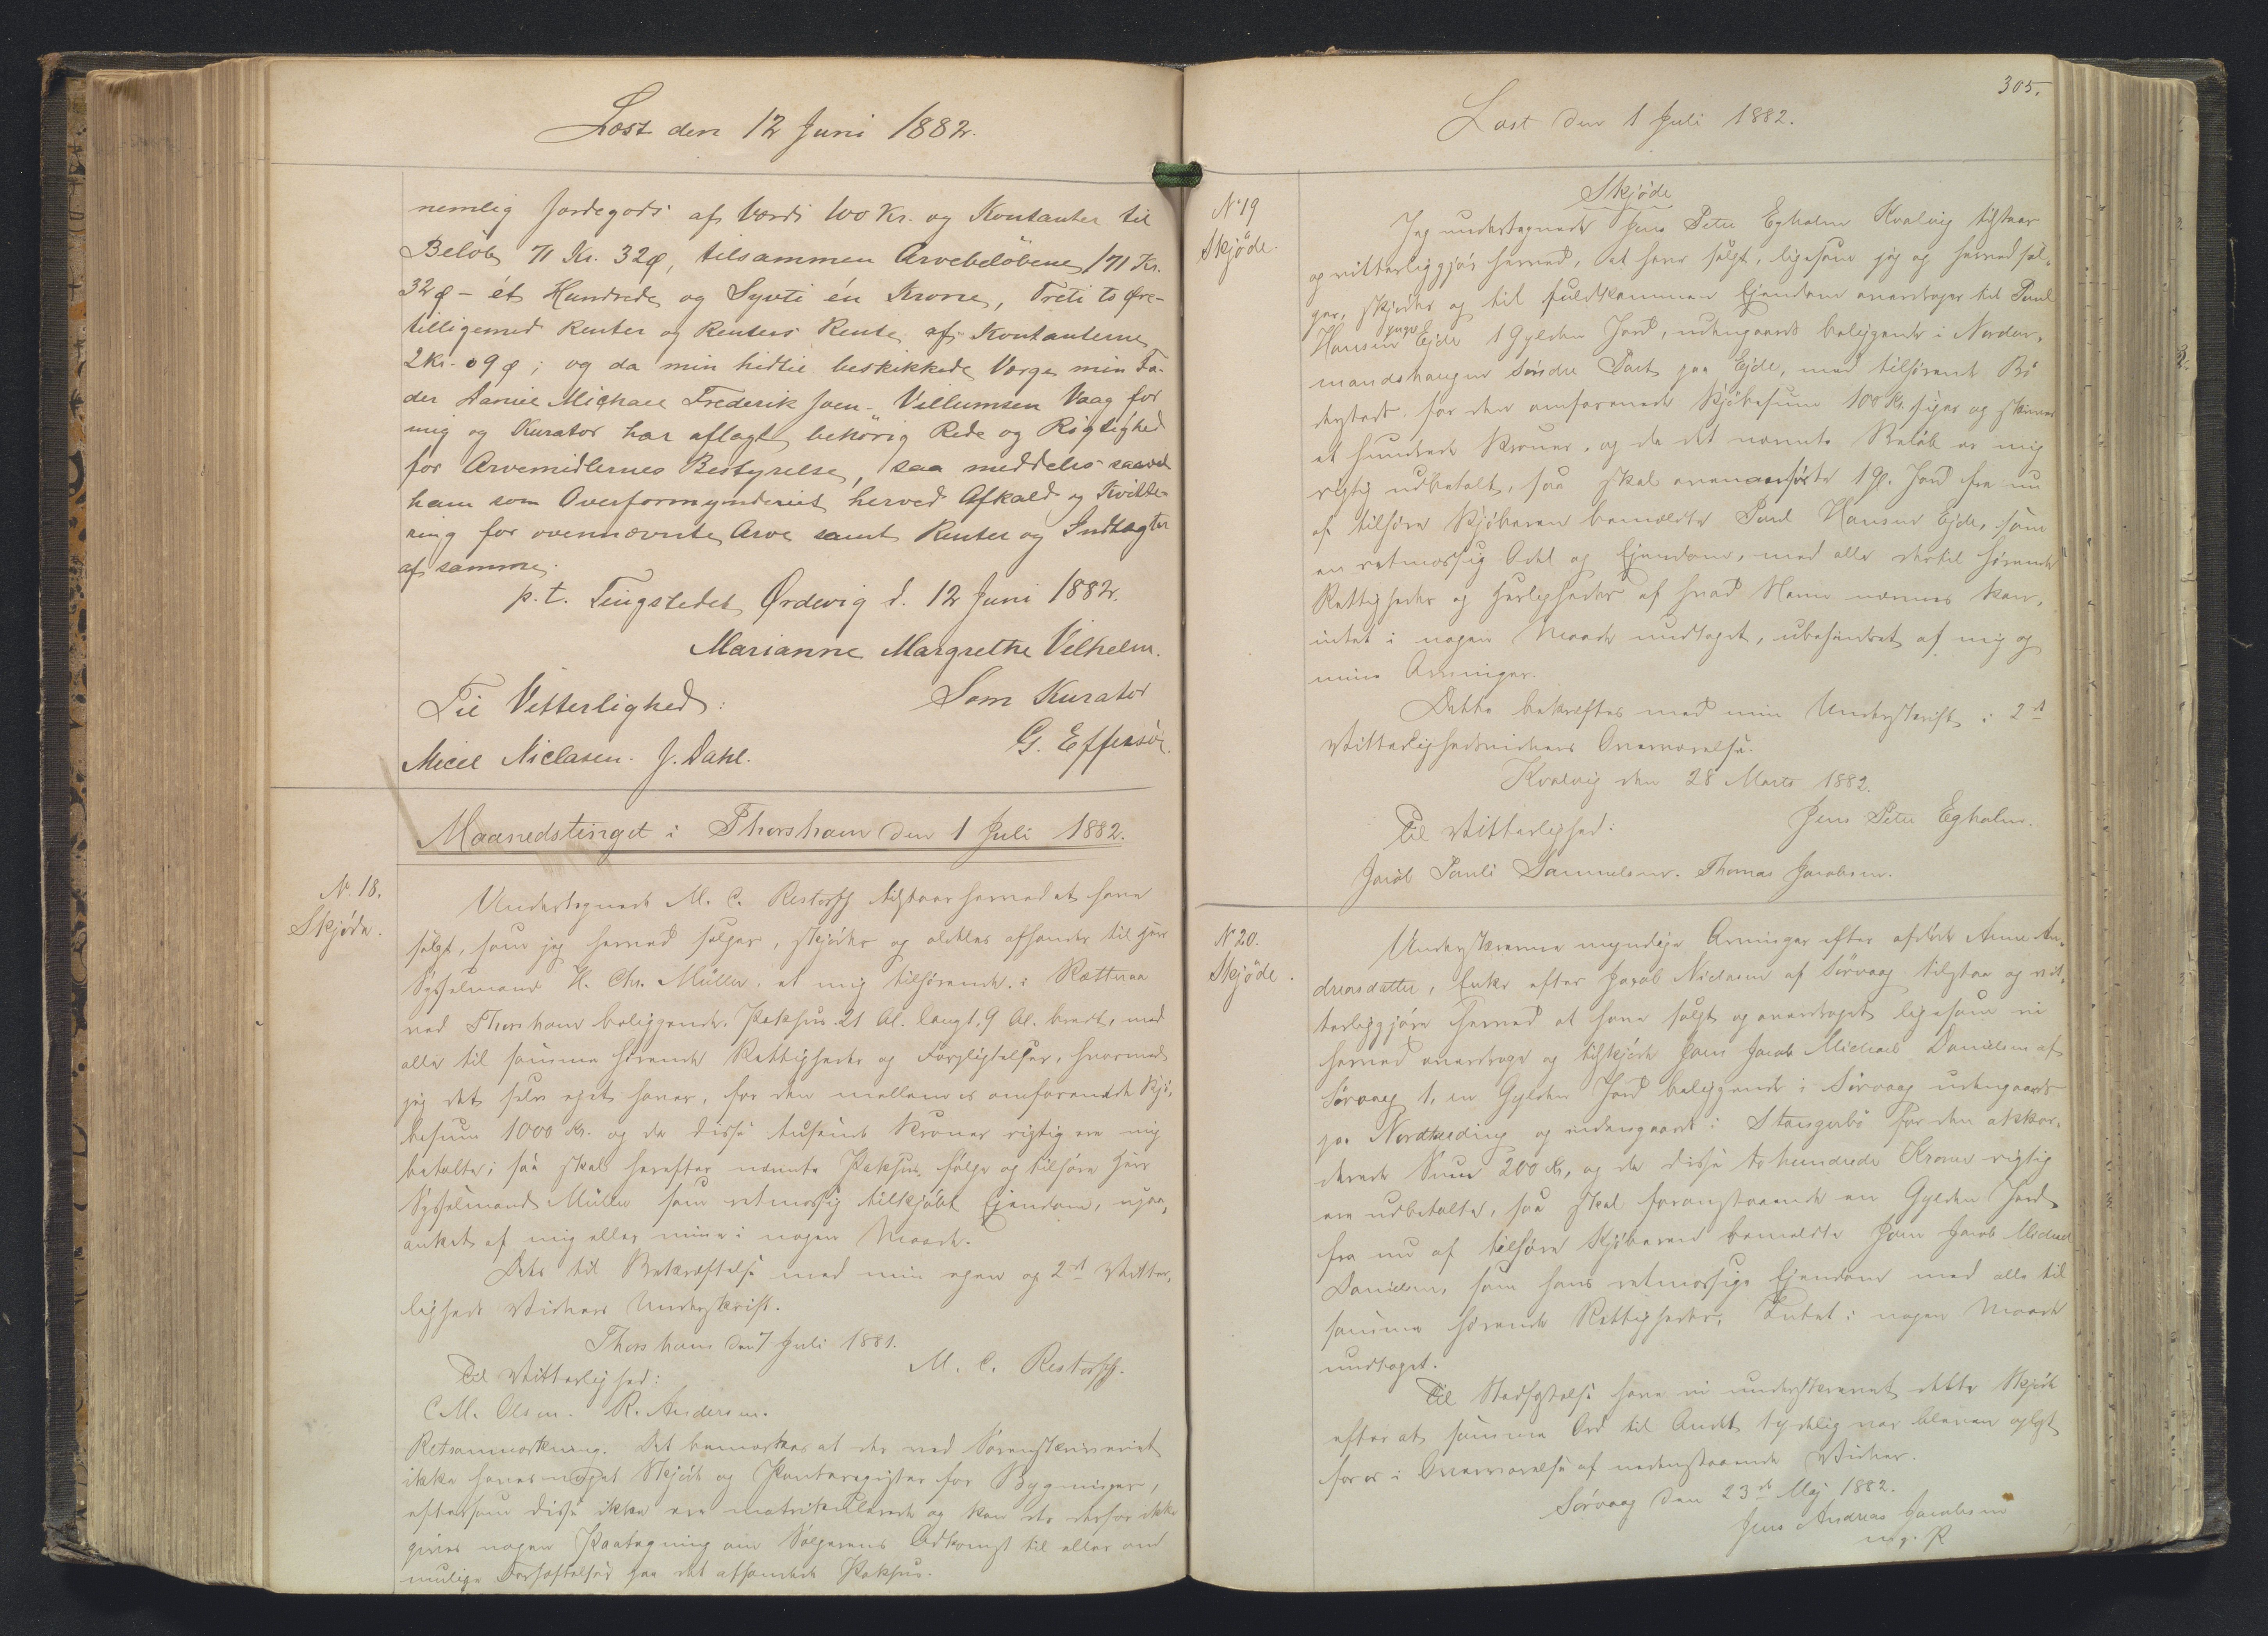 Læst den 12 Juni 1882.
nemlig Jordegods af Værdi 100 Kr. og Kontanter til
Beløb 71 Kr. 32 Ø, tilsammen Arvebeløbene 171 Kr.
32 Ø - ét Hundrede og Syvti én Krone, Treti to Øre -
tilligemed Renter og Renters Rente af Kontanterne
2 Kr. 09 Ø; og da min hidtil beskikkede Værge min Fa-
der Daniel Michael Frederik Joen-Villumsen Vaag for
mig og Kurator har aflagt behørig Rede og Rigtighed
for Arvemidlernes Bestyrelse, saa meddeles saavel
ham som Overformynderiet herved Afkald og Kvitte-
ring for ovennævnte Arve samt Renter og Indtægter
af samme.
p. t. Tingstedet Ørdevig d. 12 Juni 1882.
Marianne Margrethe Vilhelm.
Til Vitterlighed:
Som Kurator
Micel Niclasen. J. Dahl.
G. Effersøe.
Maanedstinget i Thorshavn den 1 Juli 1882.
No. 18.
Skjøde.
Undertegnede M. C. Restorff tilstaar herved at have
solgt, som jeg herved sælger, skjøder og aldeles afhænder til Herr
Sysselmand H. Chr. Müller, et mig tilhørende, i
ved Thorshavn beliggende Pakhus 21 Al. langt, 9 Al. bredt, med
alle til samme hørende Rettigheder og Forpligtelser, hvormed
jeg det selv ejet haver, for den mellem os omforenede Kjø-
besum 1000 Kr. og da disse tusinde Kroner rigtig ere mig
betalte; saa skal herefter nævnte Pakhus følge og tilhøre Herr
Sysselmand Müller som retmæssig tilkjøbt Ejendom, upaa-
anket af mig eller mine i nogen Maade.
Dets til Bekræftelse med min egen og 2de Vitter-
ligheds Vidners Underskrift.
Thorshavn den 7 Juli 1881.
Til Vitterlighed:
M. C. Restorff.
C. M. Olsen. R. Andersen.
Retsanmærkning. Det bemærkes at der ved Sorenskriveriet
ikke haves noget Skjøde og Panteregister for Bygninger,
eftersom disse ikke ere matrikulerede og kan der derfor ikke
gives nogen Paategning om Sælgerens Adkomst til eller om
mulige Behæftelser paa det afhændede Pakhus.
305.
Læst den 1 Juli 1882.
No 19
Skjøde.
Skjøde
Jeg undertegnede Jens Peter Egholm Kvalvig tilstaar
og vitterliggjør herved, at have solgt, ligesom jeg og herved sæl-
ger, skjøder og til fuldkommen Ejendom overdrager til Poul
Hansen Ejde 1 Gylden Jord, udengaards beliggende i Norder-
mandshaugen søndre Part paa Ejde, med tilhørende Bø
for den omforenede Kjøbesum 100 Kr. siger og skriver
et hundrede Kroner, og da det nævnte Beløb er mig
rigtig udbetalt, saa skal ovenanførte 1 Gl. Jord fra nu
af tilhøre Kjøberen bemeldte Poul Hansen Ejde, som
en retmæssig Odel og Ejendom, med alle dertil hørende
Rettigheder og Herligheder af hvad Navn nævnes kan,
intet i nogen Maade undtaget, ubehindret af mig og
mine Arvinger.
Dette bekræftes med min Underskrift i 2de
Vitterlighedsvidners Overværelse.
Kvalvig den 28 Marts 1882.
Til Vitterlighed:
Jens Peter Egholm.
Jacob Pauli Samuelsen. Thomas Jacobsen.
No 20.
Skjøde.
Underskrevne myndige Arvinger efter afdøde Anne An-
dreasdatter, Enke efter Jacob Niclasen af Sørvaag tilstaa og vit-
terliggjøre herved at have solgt og overdraget ligesom vi
herved overdrage og tilskjøde Joen Jacob Michael Danielsen af
Sørvaag 1, en Gylden Jord beliggende i Sørvaag udengaards
paa Nordhæding og indengaards i Stangerbø for den akkor-
derede Sum 200 Kr, og da disse to hundrede Kroner rigtig
ere udbetalte, saa skal foranstaaende en Gylden Jord
fra nu af tilhøre Kjøberen bemeldte Joen Jacob Michael
Danielsen, som hans retmæssige Ejendom med alle til
samme hørende Rettigheder, Intet i nogen Maade
undtaget.
Til Stadfæstelse have vi underskrevet dette Skjøde
efter at samme Ord til Andet tydelig var bleven oplæst
for os i Overværelse af nedenstaaende Vidner.
Sørvaag den 23de Maj 1882.
Jens Andreas Jacobsen
m. g. P